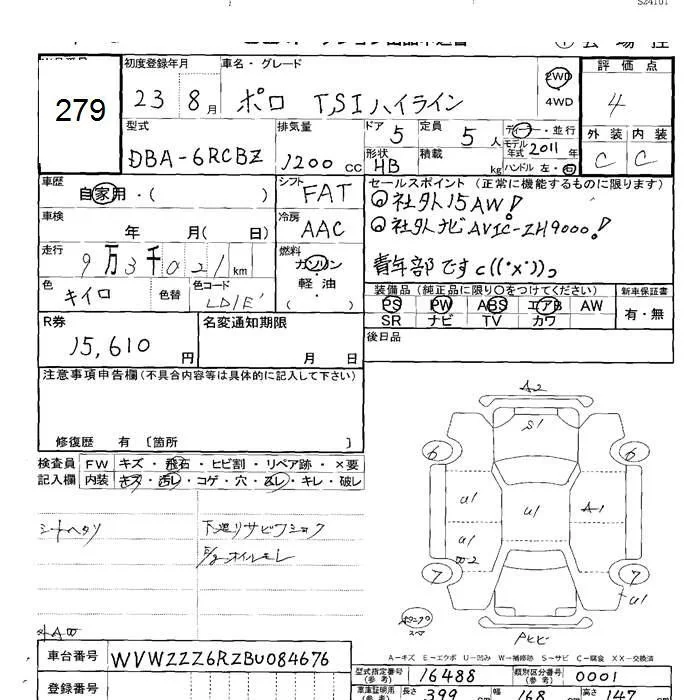 S24101
279
初度登録年月 車名・グレード 評価点
23 8月 ポロ TSIハイライン 2WD 4WD 4
外装 内装
C C
型式 排気量 ドア 定員 ディーラー・並行
DBA-6RCBZ 1200 cc 5 5人 モデル年式 2011年
形状 積載 ハンドル 左・右
HB kg
車歴 シフト セールスポイント (正常に機能するものに限ります)
自家用・( ) FAT
社外15AW!
車検 冷房
年 月( 日) AAC 社外ナビAVIC-ZH9000!
走行 燃料
9万3千021km ガソリン・軽・油・( ) 青年部ですc((・x・))っ
色 色替 色コード 装備品(純正品に限り○をつけてください) 新車保証書
キイロ LD1E PS PW ABS エアB AW 有・無
SR ナビ TV カワ
R券 名変通知期限 後日品
15,610円 月 日
注意事項申告欄(不具合内容等は具体的に記入して下さい)
修復歴 有 〔箇所 〕
検査員 FW キズ・飛石・ヒビ割・リペア跡・×要
記入欄 内装 キズ・汚レ・コゲ・穴・スレ・キレ・破レ
シートヘタリ 下廻りサビワショク
E/g オイルモレ
A2
S1
6 6
U1 U1 A1
U1
W2
7 7
U1
外AW
A-キズ E-エクボ U-凹み W-補修跡 S-サビ C-腐食 XX-交換済
車台番号 WVWZZZ6RZBU084676
型式指定番号(参考) 16488 類別区分番号(参考) 0001
登録番号
車庫証明用(参考) 長さ 399 cm 幅 168 cm 高さ 147 cm